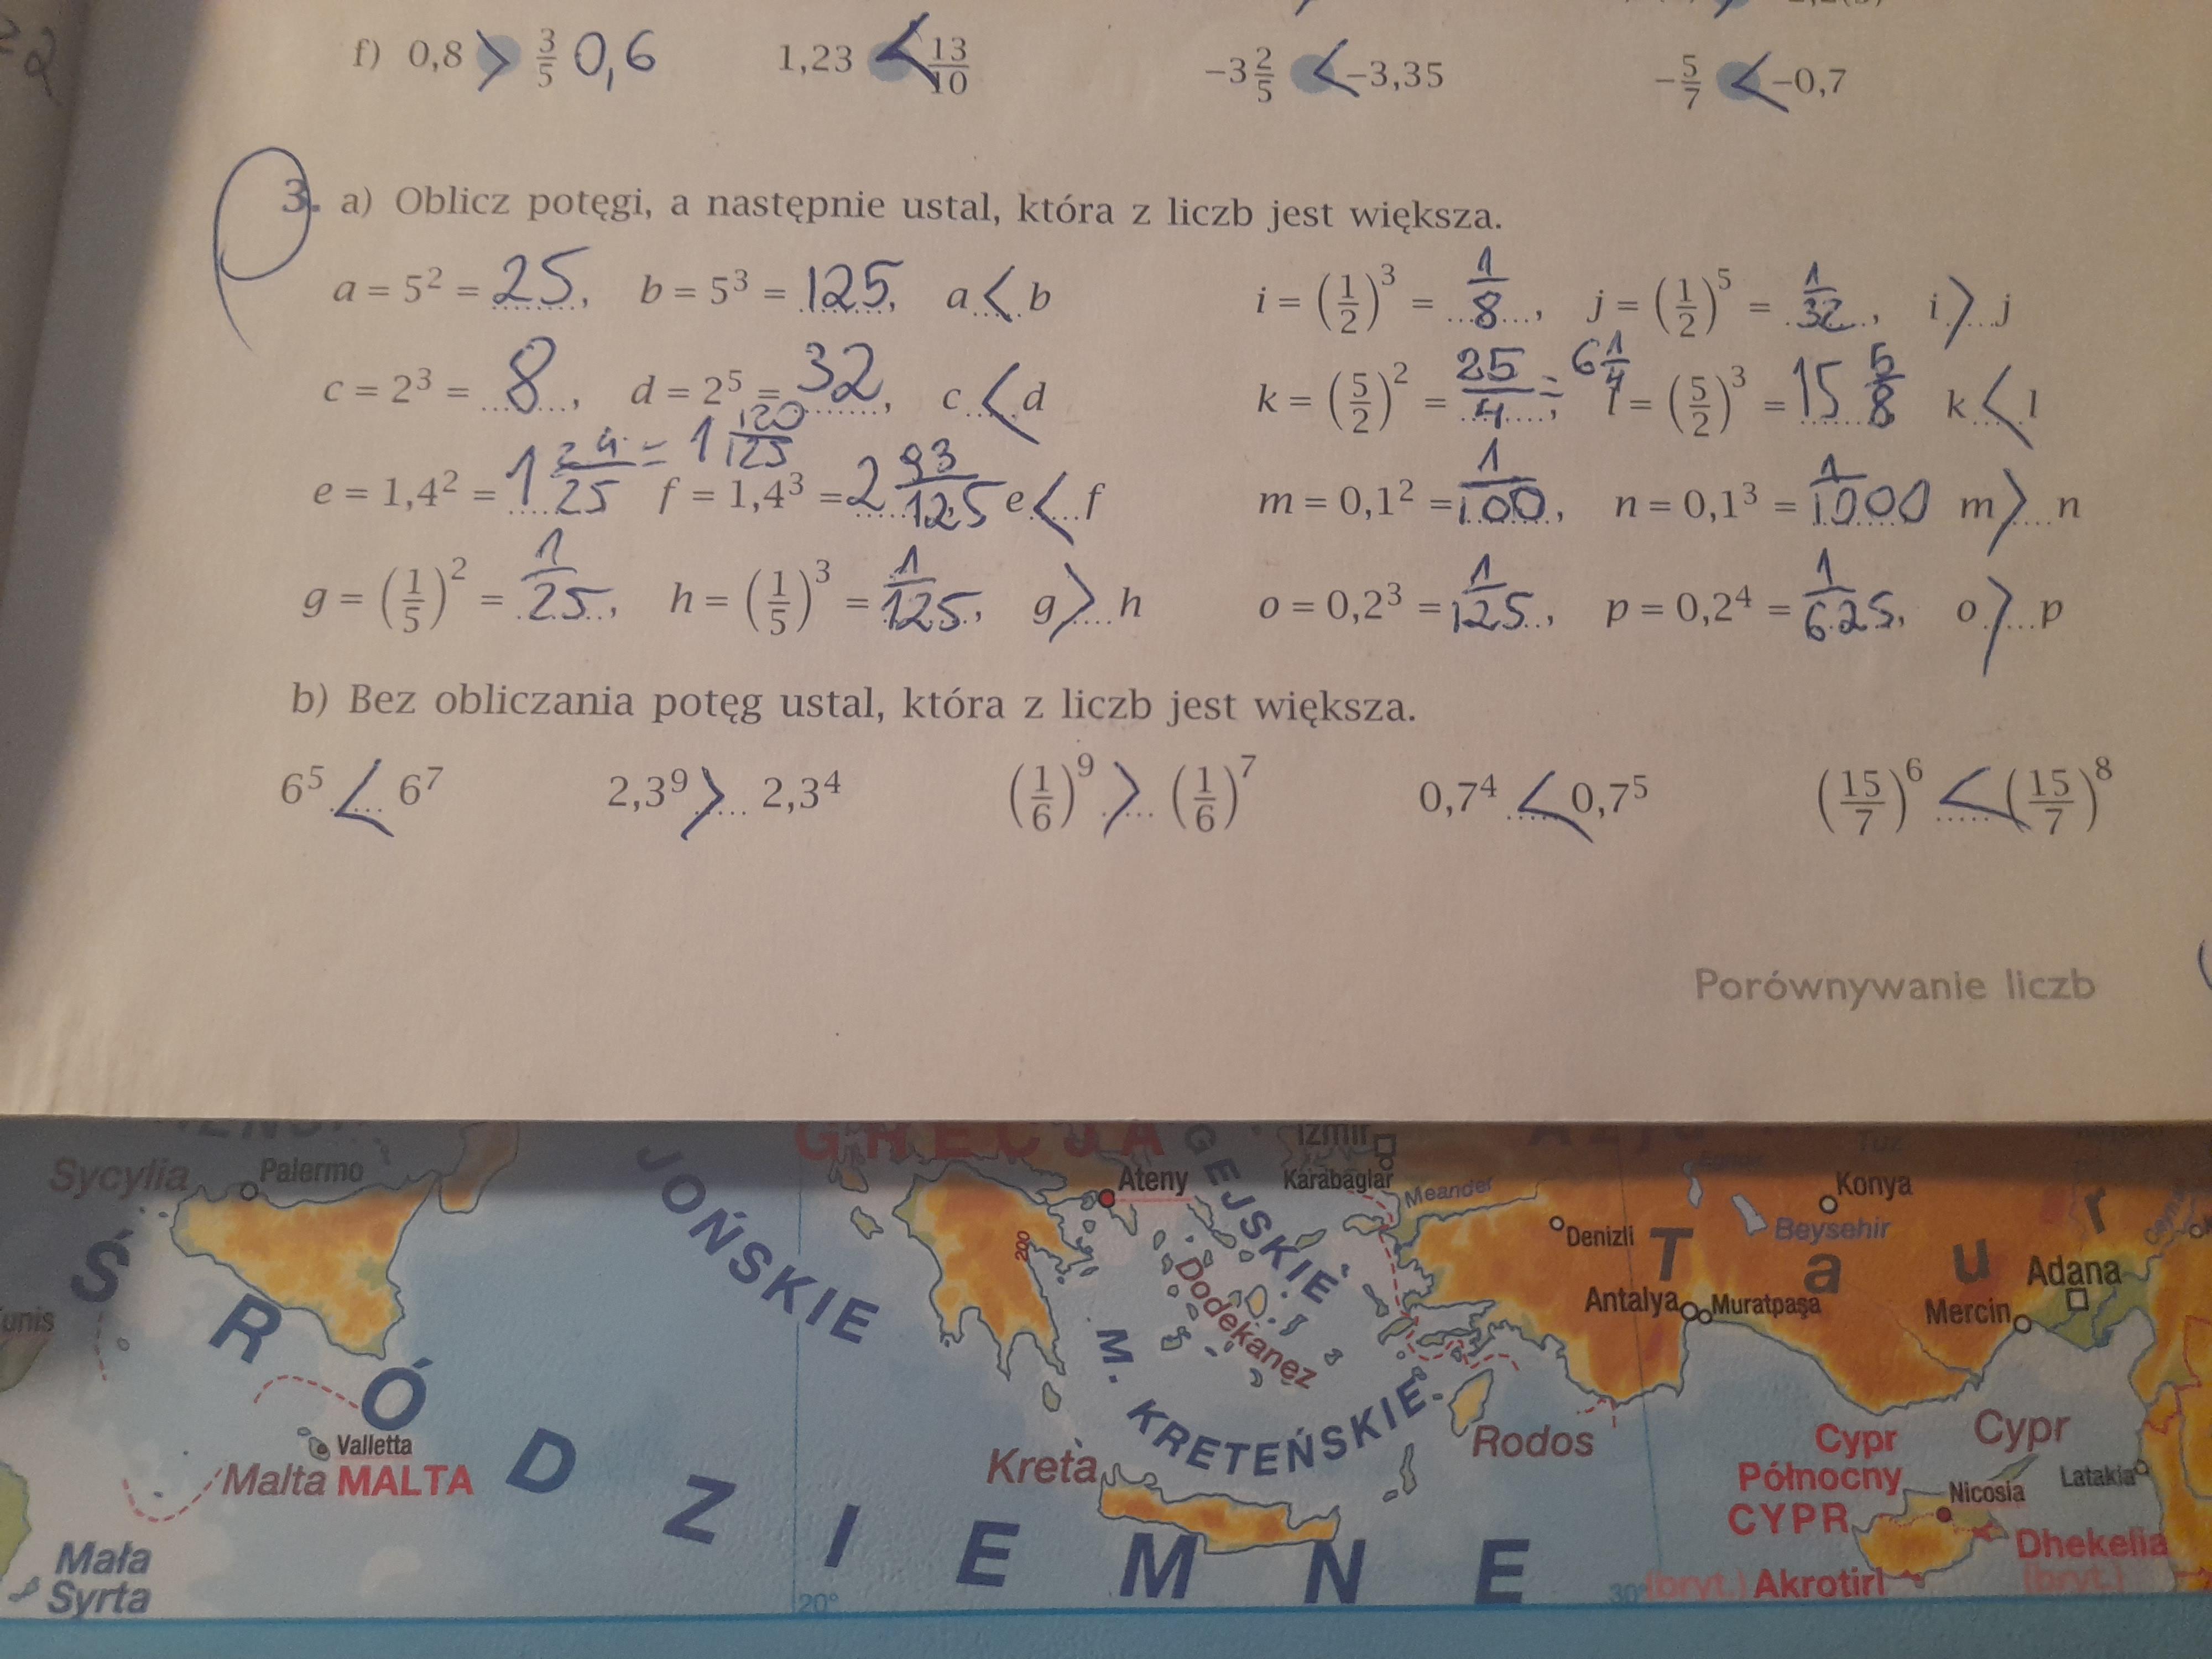 f) 0,8 > 3/5 0,6 1,23 < 13/10 −3 2/5 < −3,35 −5/7 < −0,7
3. a) Oblicz potęgi, a następnie ustal, która z liczb jest większa.
a = 5² = 25, b = 5³ = 125, a < b i = (1/2)³ = 1/8, j = (1/2)⁵ = 1/32, i > j
c = 2³ = 8, d = 2⁵ = 32, c < d k = (5/2)² = 25/4 = 6 1/4, l = (5/2)³ = 15 5/8 k < l
e = 1,4² = 1 24/25 = 1 120/125 f = 1,4³ = 2 93/125 e < f m = 0,1² = 1/100, n = 0,1³ = 1/1000 m > n
g = (1/5)² = 1/25, h = (1/5)³ = 1/125, g > h o = 0,2³ = 1/125, p = 0,2⁴ = 1/625, o > p
b) Bez obliczania potęg ustal, która z liczb jest większa.
6⁵ < 6⁷ 2,3⁹ > 2,3⁴ (1/6)⁹ > (1/6)⁷ 0,7⁴ < 0,7⁵ (15/7)⁶ < (15/7)⁸
Porównywanie liczb
GRECJA
Izmir
Sycylia
Palermo
Ateny
Karabağlar
Meander
Konya
Beysehir
Denizli
JOŃSKIE
EGEJSKIE
Dodekanez
200
Taur
Adana
Antalya
Muratpaşa
Mercin
M. KRETEŃSKIE
Valletta
Malta MALTA
Kreta
Rodos
Cypr Północny
Cypr
CYPR
Latakia
Nicosia
Dhekelia
(bryt.)
(bryt.) Akrotiri
ŚRÓDZIEMNE
Mała
Syrta
20°
30°